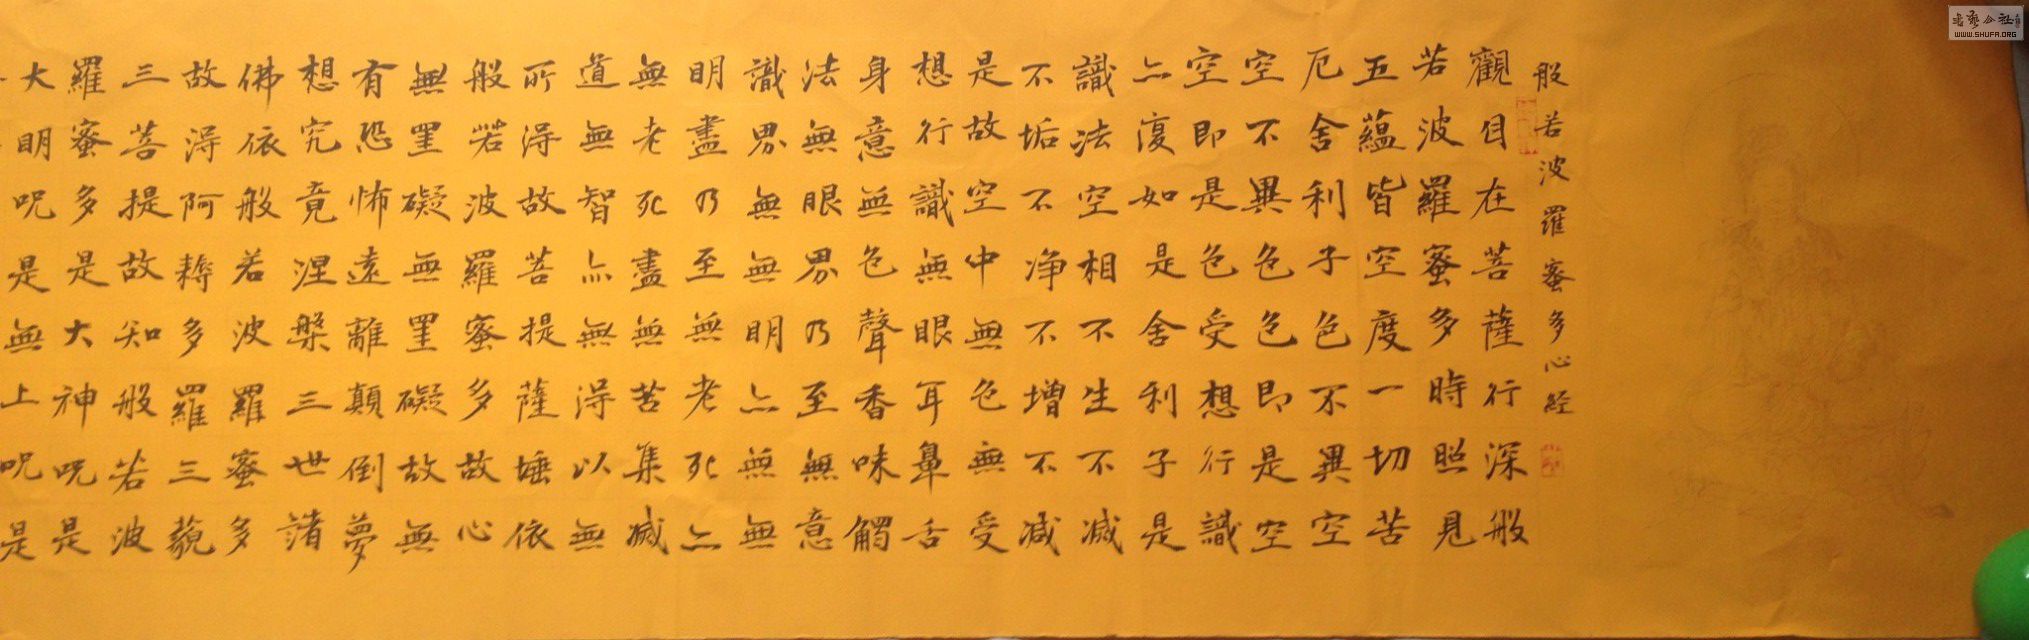 般若波羅蜜多心經
觀自在菩薩行深般
若波羅蜜多時照見
五蘊皆空度一切苦
厄舍利子色不異空
空不異色色即是空
空即是色受想行識
亦復如是舍利子是
識法空相不生不滅
不垢不净不增不减
是故空中無色無受
想行識無眼耳鼻舌
身意無色聲香味觸
法無眼界乃至無意
識界無無明亦無無
明盡乃至無老死亦
無老死盡無苦集滅
道無智亦無得以無
所得故菩提薩埵依
般若波羅蜜多故心
無罣礙無罣礙故無
有恐怖遠離顛倒夢
想究竟涅槃三世諸
佛依般若波羅蜜多
故得阿耨多羅三藐
三菩提故知般若波
羅蜜多是大神呪是
大明呪是無上呪是
WWW.SHUFA.ORG